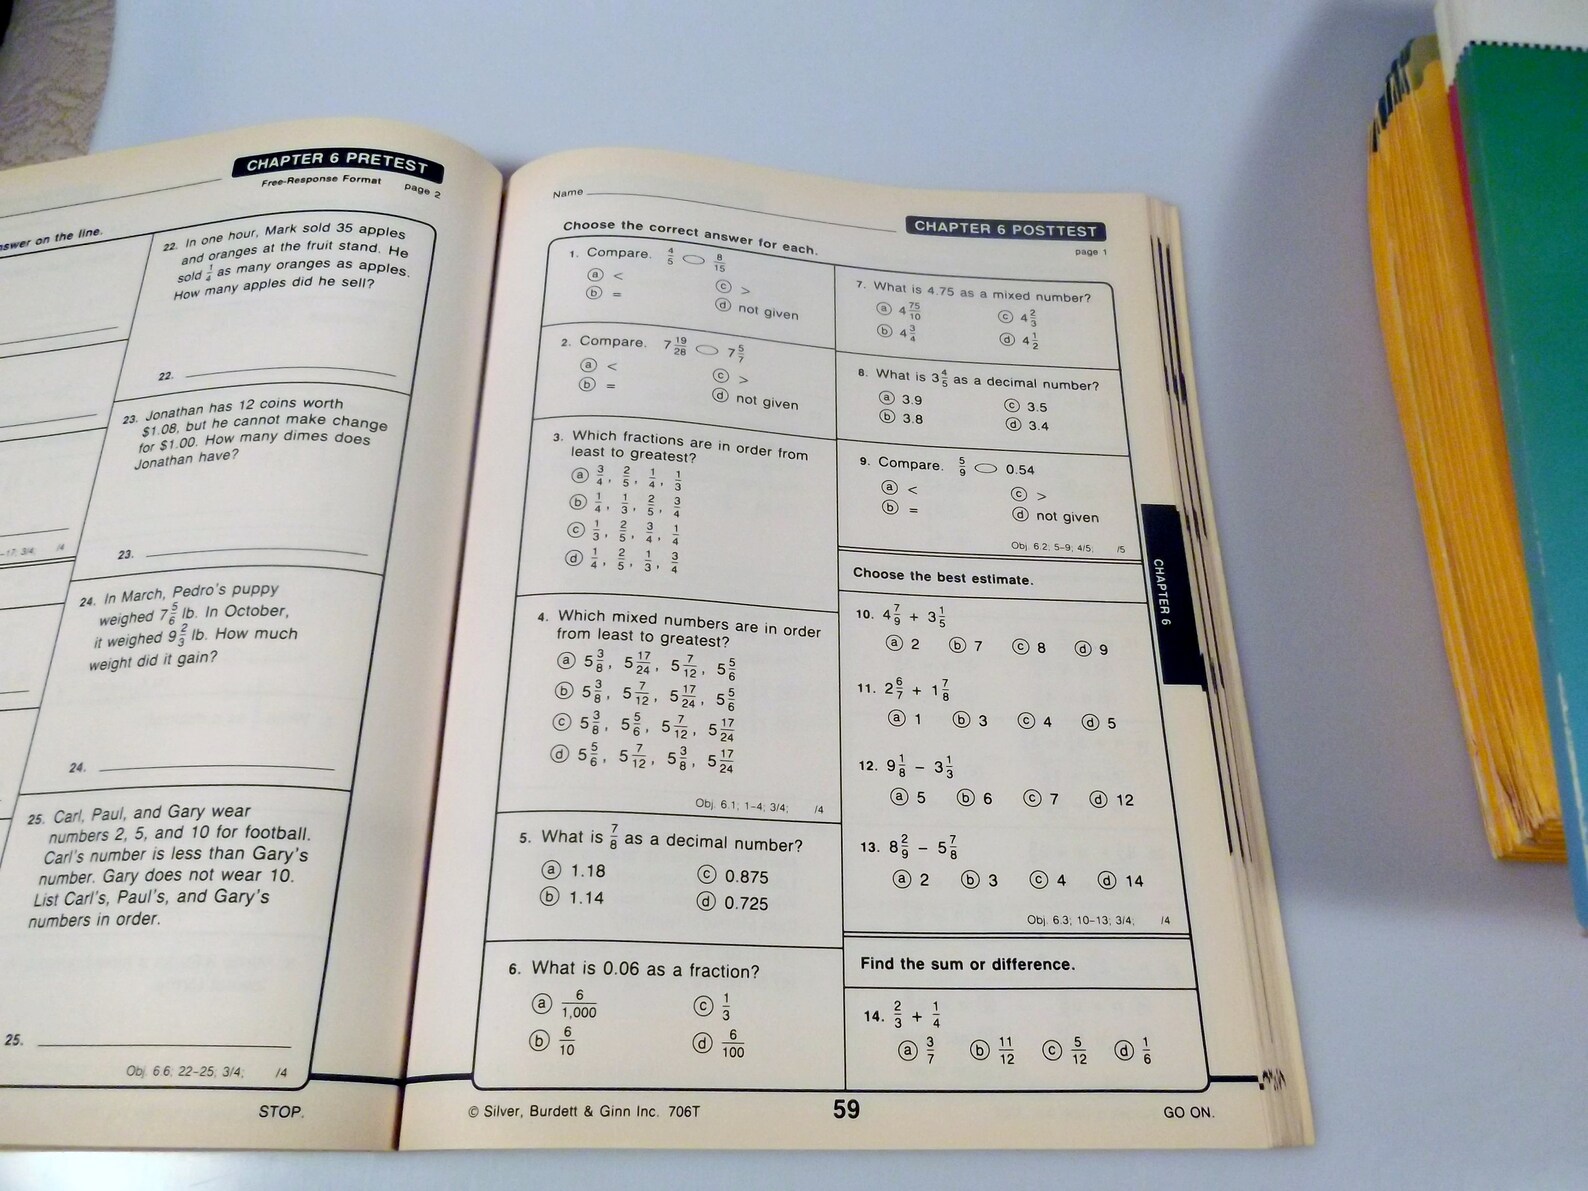 CHAPTER 6 PRETEST
Free-Response Format page 2
answer on the line.
22. In one hour, Mark sold 35 apples
and oranges at the fruit stand. He
sold 1/4 as many oranges as apples.
How many apples did he sell?
22.
23. Jonathan has 12 coins worth
$1.08, but he cannot make change
for $1.00. How many dimes does
Jonathan have?
23.
-17; 3/4; /4
24. In March, Pedro's puppy
weighed 7 5/6 lb. In October,
it weighed 9 2/3 lb. How much
weight did it gain?
24.
25. Carl, Paul, and Gary wear
numbers 2, 5, and 10 for football.
Carl's number is less than Gary's
number. Gary does not wear 10.
List Carl's, Paul's, and Gary's
numbers in order.
25.
Obj. 6.6; 22–25, 3/4; /4
STOP.
Name
CHAPTER 6 POSTTEST
page 1
Choose the correct answer for each.
1. Compare. 4/5 ○ 8/15
a <
c >
b =
d not given
2. Compare. 7 19/28 ○ 7 5/7
a <
c >
b =
d not given
3. Which fractions are in order from
least to greatest?
a 3/4, 2/5, 1/4, 1/3
b 1/4, 1/3, 2/5, 3/4
c 1/3, 2/5, 3/4, 1/4
d 1/4, 2/5, 1/3, 3/4
4. Which mixed numbers are in order
from least to greatest?
a 5 3/8, 5 17/24, 5 7/12, 5 5/6
b 5 3/8, 5 7/12, 5 17/24, 5 5/6
c 5 3/8, 5 5/6, 5 7/12, 5 17/24
d 5 5/6, 5 7/12, 5 3/8, 5 17/24
Obj. 6.1; 1–4; 3/4; /4
5. What is 7/8 as a decimal number?
a 1.18 c 0.875
b 1.14 d 0.725
6. What is 0.06 as a fraction?
a 6/1,000 c 1/3
b 6/10 d 6/100
7. What is 4.75 as a mixed number?
a 4 75/10 c 4 2/3
b 4 3/4 d 4 1/2
8. What is 3 4/5 as a decimal number?
a 3.9 c 3.5
b 3.8 d 3.4
9. Compare. 5/9 ○ 0.54
a < c >
b = d not given
Obj. 6.2; 5–9; 4/5; /5
Choose the best estimate.
10. 4 7/9 + 3 1/5
a 2 b 7 c 8 d 9
11. 2 6/7 + 1 7/8
a 1 b 3 c 4 d 5
12. 9 1/8 − 3 1/3
a 5 b 6 c 7 d 12
13. 8 2/9 − 5 7/8
a 2 b 3 c 4 d 14
Obj. 6.3; 10–13; 3/4; /4
Find the sum or difference.
14. 2/3 + 1/4
a 3/7 b 11/12 c 5/12 d 1/6
CHAPTER 6
© Silver, Burdett & Ginn Inc. 706T
59
GO ON.